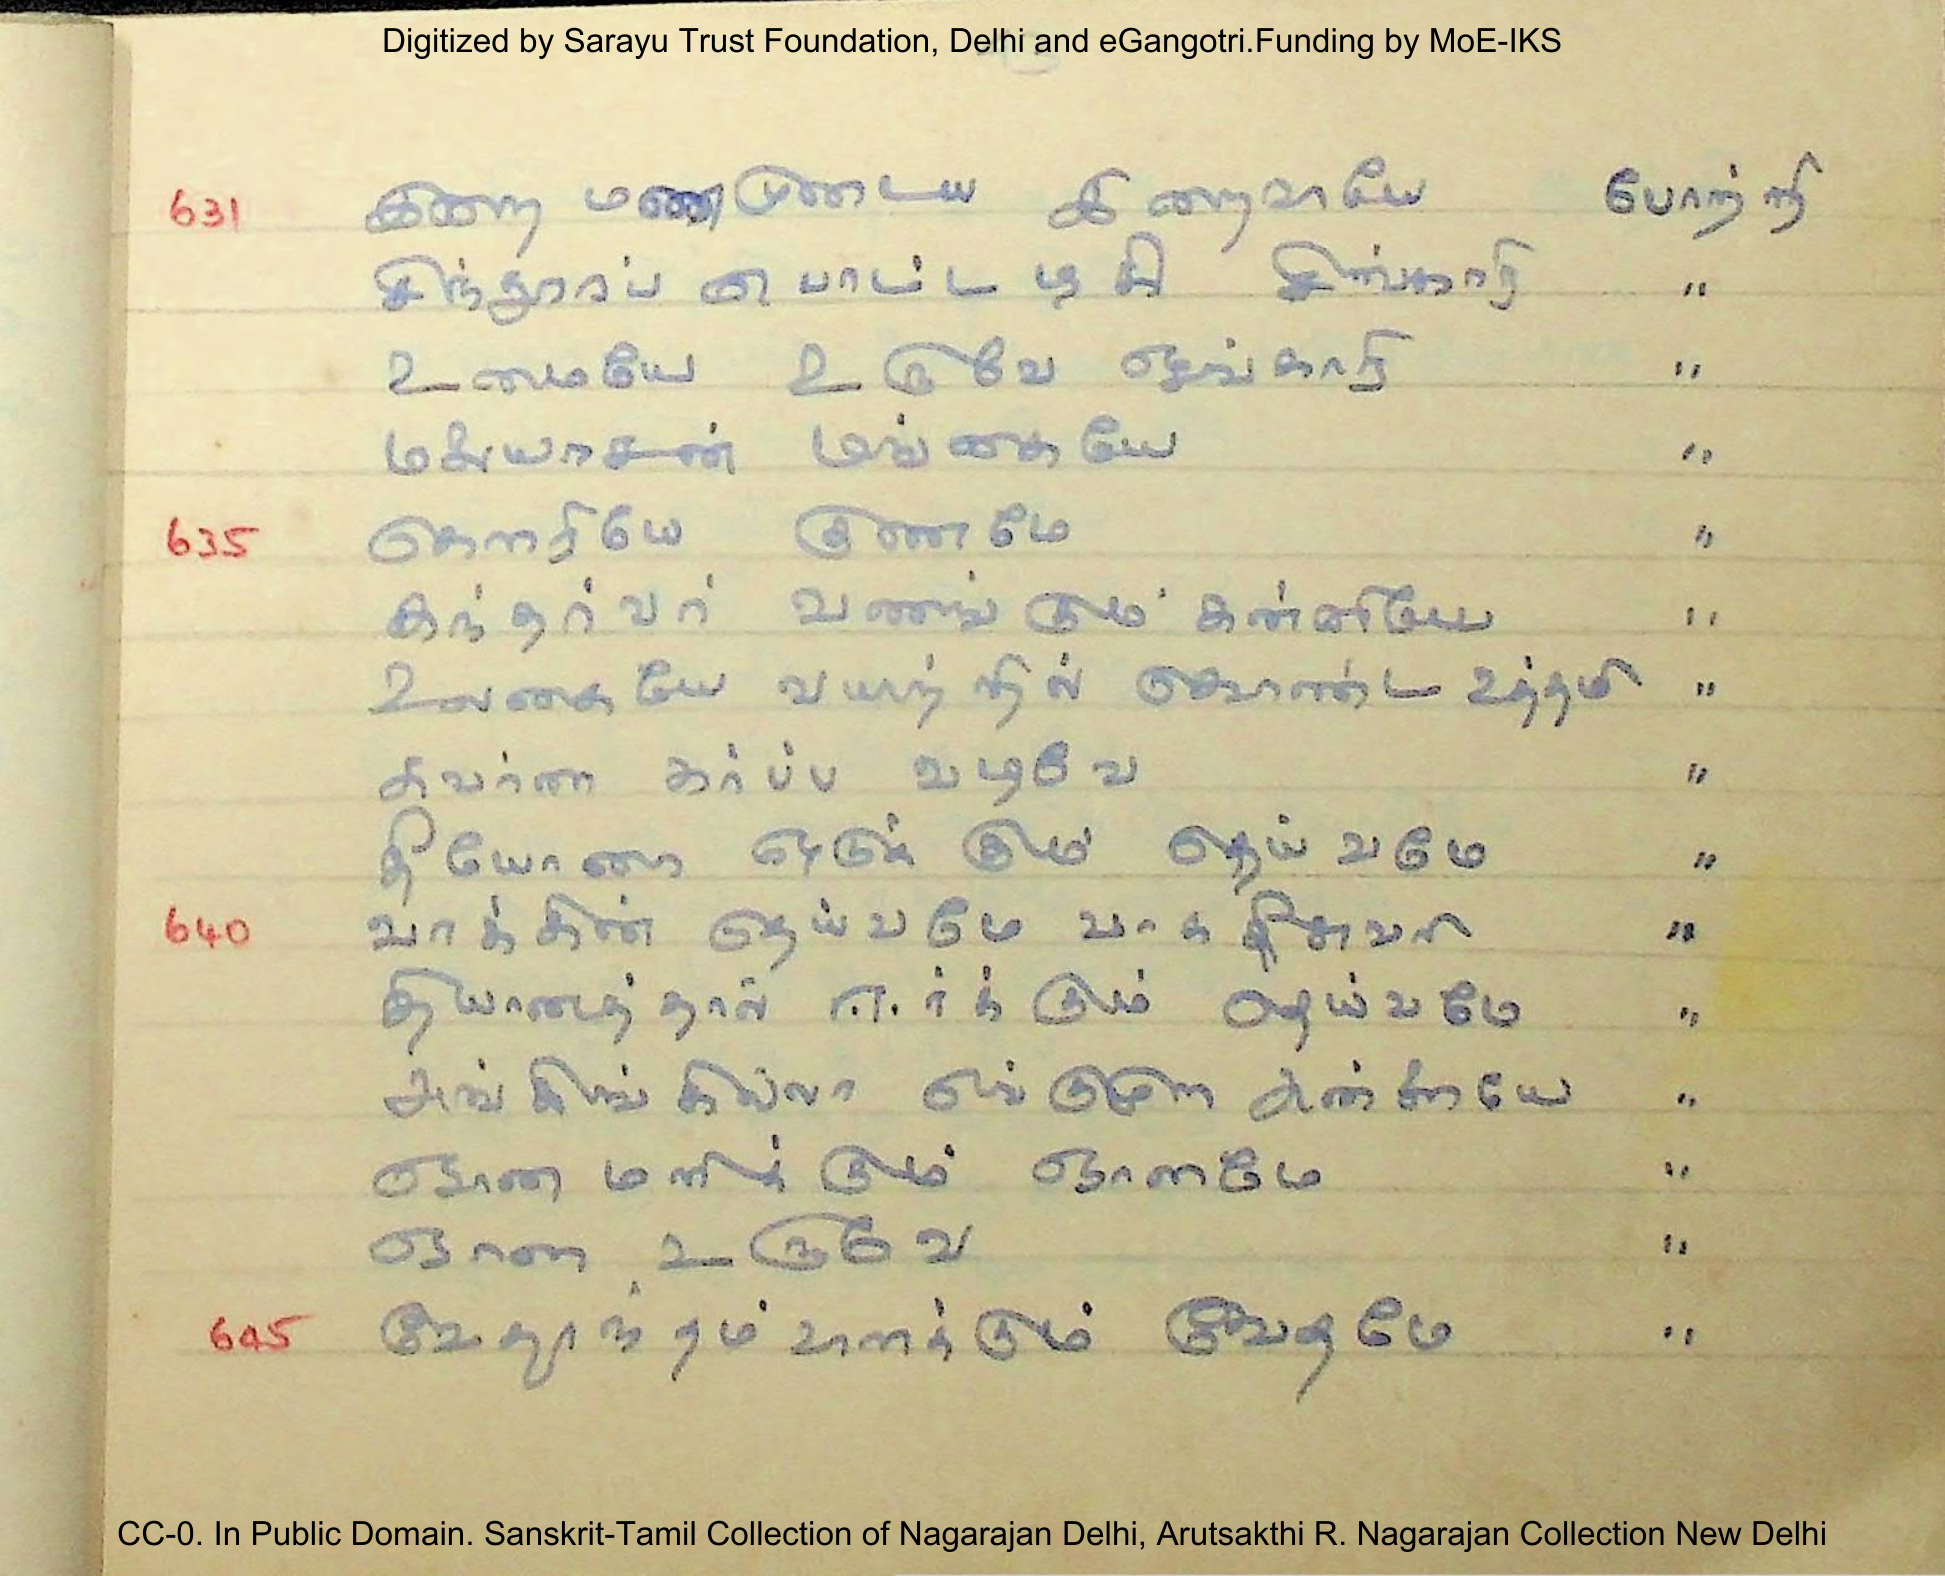 Digitized by Sarayu Trust Foundation, Delhi and eGangotri.Funding by MoE-IKS
631 இறை மணமுடைய இறைவாயே போற்றி
சிந்தூரப் பொட்டழகி சிங்காரி "
உமையே உருவே ஓங்காரி "
மங்கையே "
635 கௌரியே குணமே "
கந்தர்வர் வணங்கும் கன்னியே "
உலகையே வயிற்றில் கொண்ட உத்தமி "
சுவர்ண கர்ப்ப வடிவே "
கும் தெய்வமே "
640 வாக்கின் தெய்வமே வாகீசுவரி "
தியானத்தால் தெய்வமே "
அங்கிங்கில்லா எங்குமுள அன்னையே "
ஞான மளிக்கும் ஞானமே "
ஞான உருவே "
645 வேதாந்தம் வேதமே "
CC-0. In Public Domain. Sanskrit-Tamil Collection of Nagarajan Delhi, Arutsakthi R. Nagarajan Collection New Delhi